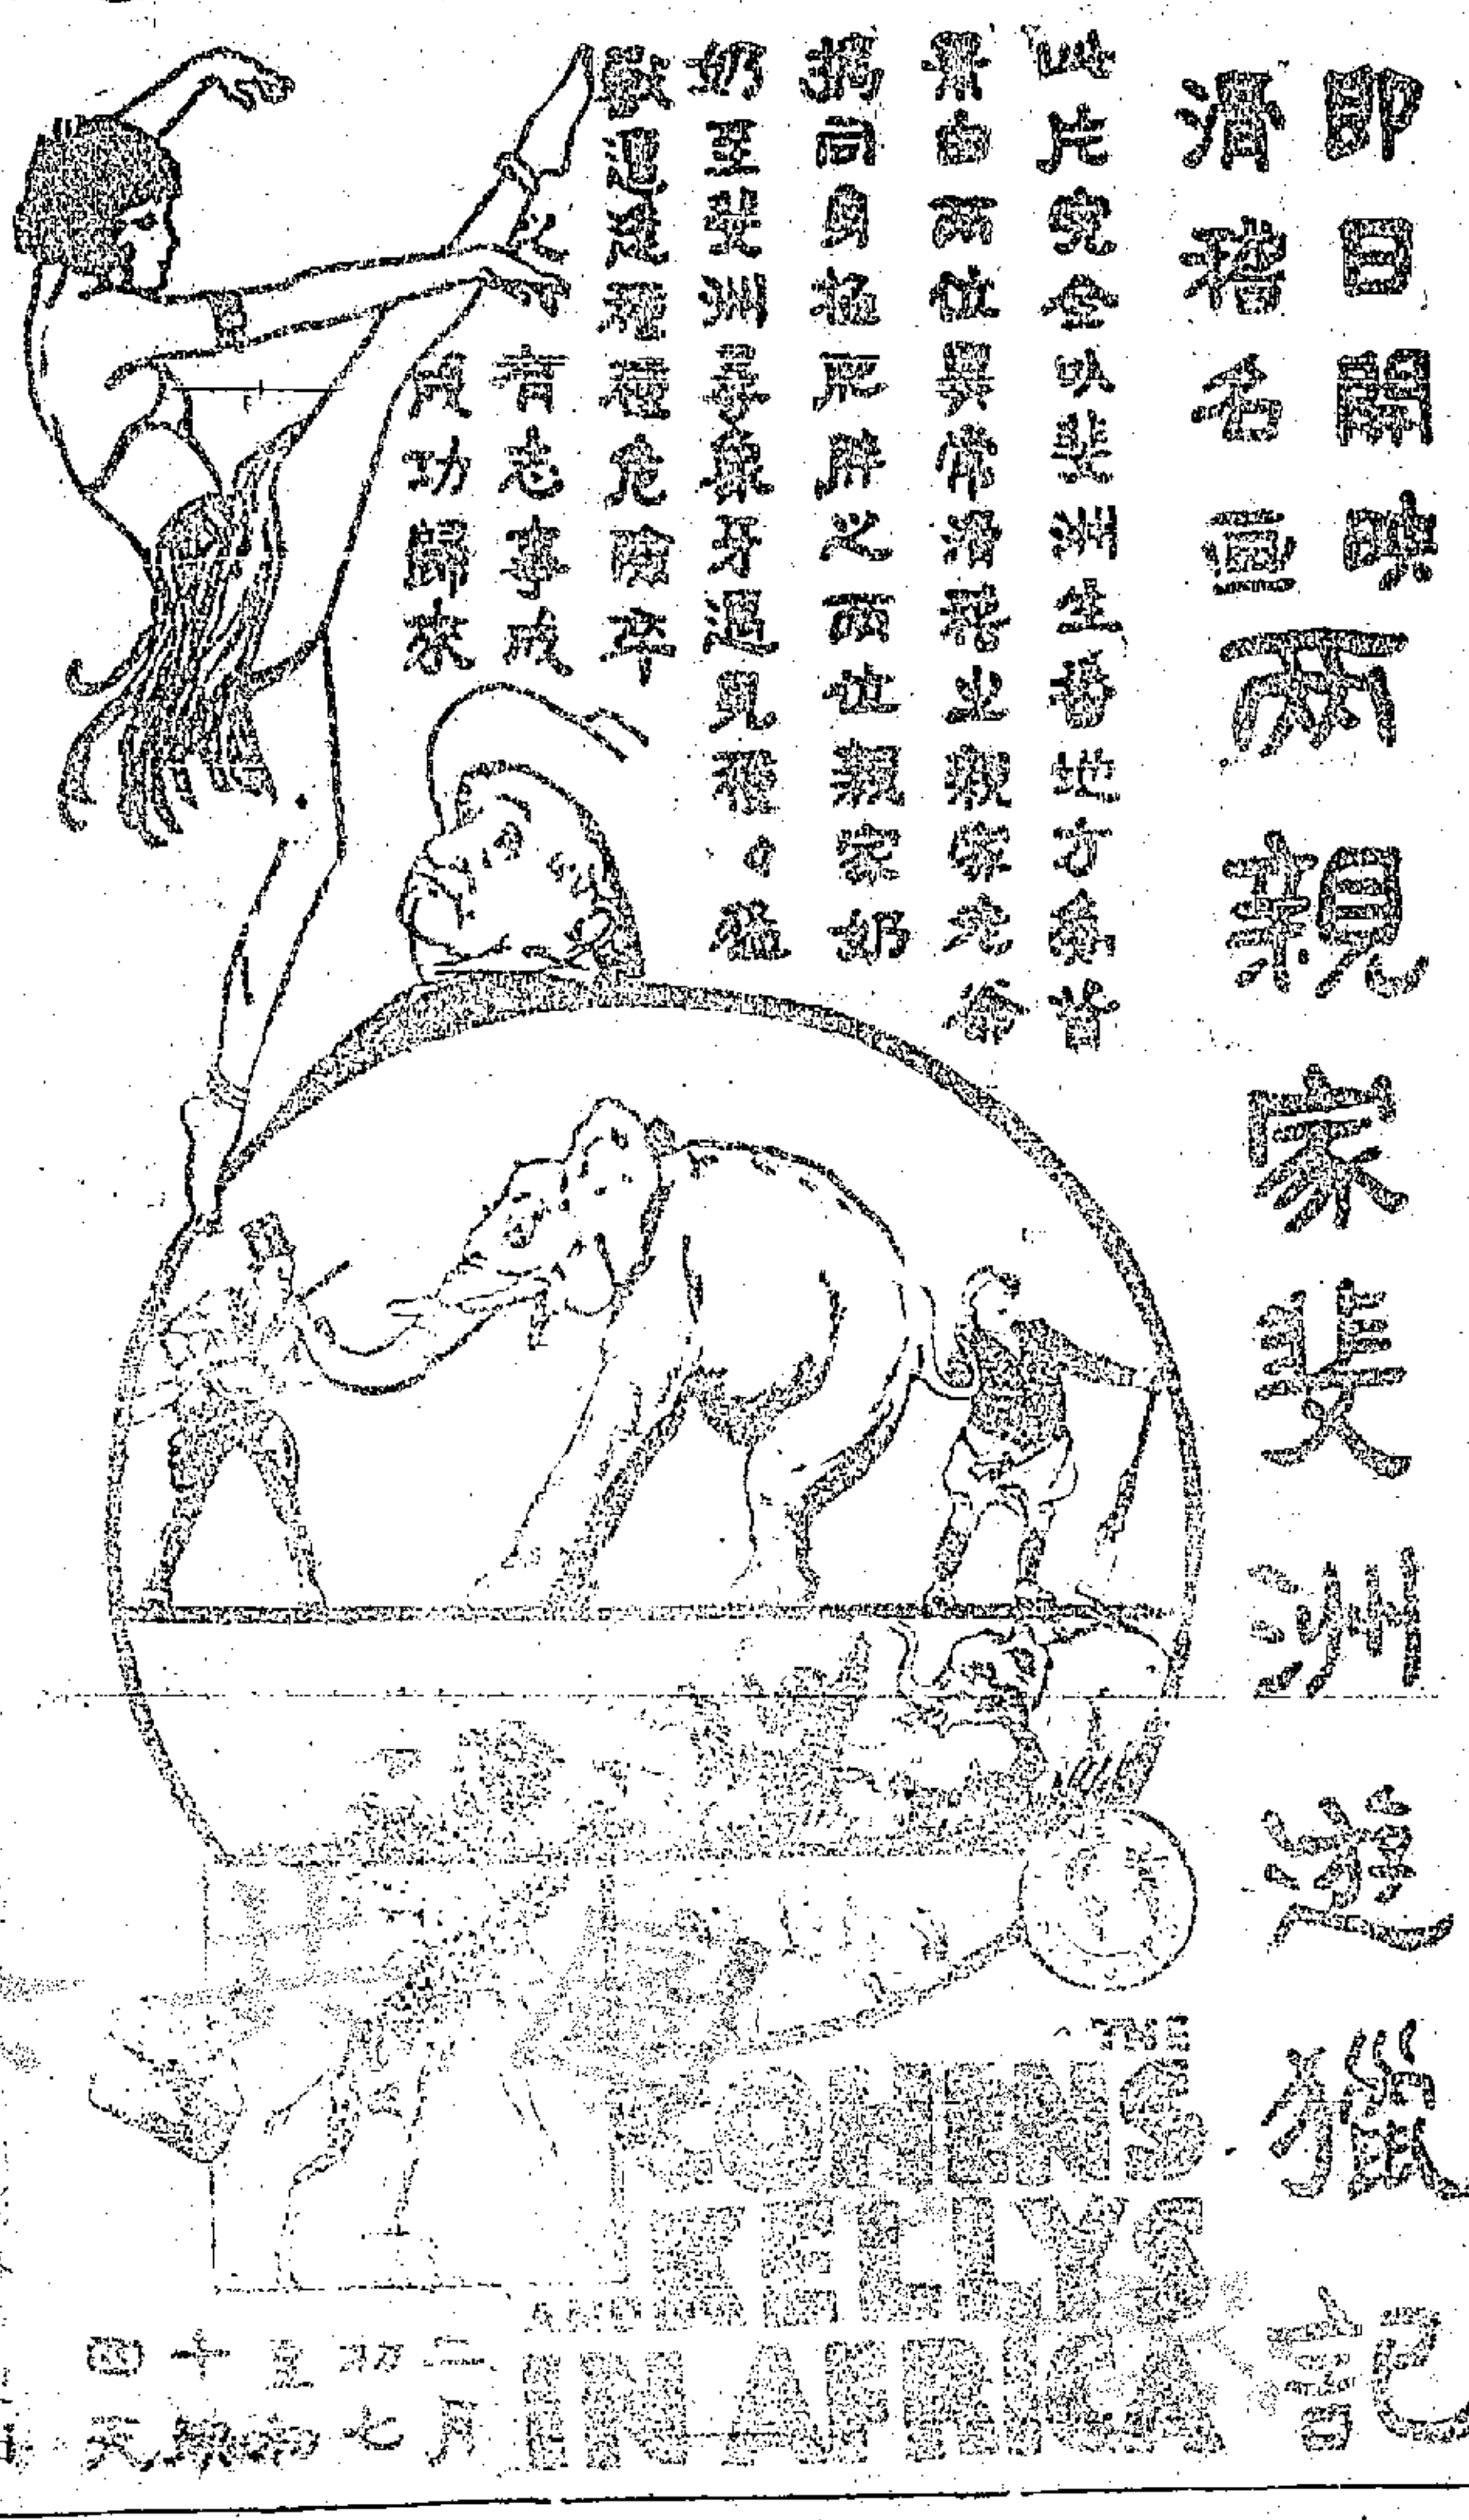 即日開映
滑稽名畫
兩親家斐洲遊獵記
此片完全以斐洲生番地方為背
景由兩位異常滑稽之親家老爺
携同身極肥胖之兩位親家奶
奶至斐洲尋象牙遇見種々猛
獸種種危險卒
之有志事成
成功歸來
THE
COHENS
AND KELLYS
IN AFRICA
二月
初七